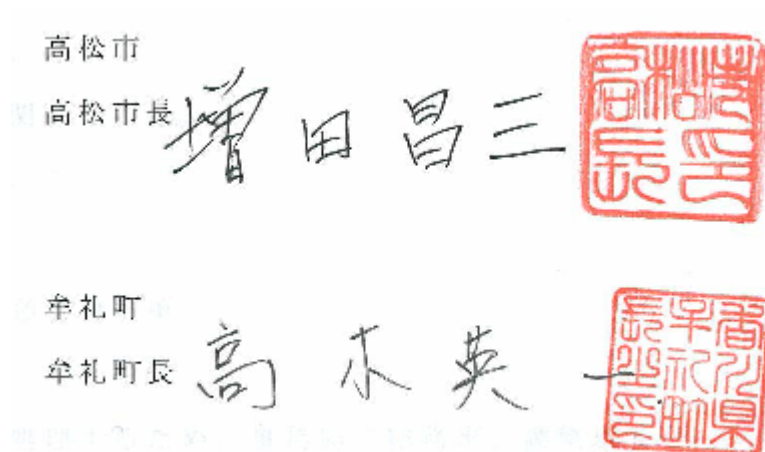 高松市
高松市長 増田昌三
牟礼町
牟礼町長 高木英一
香川県牟礼町長之印